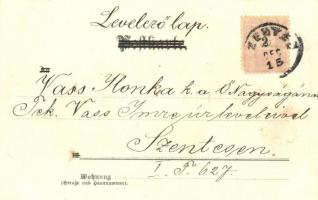 Levelező lap.
Postkarte.
ZENTA
15
An
Vass Ilonka k. a Ő Nagyságának
Tek. Vass Imre úr leveleivel
in
Szentesen
I. T. 627.
Wohnung
(Straße und Hausnummer).